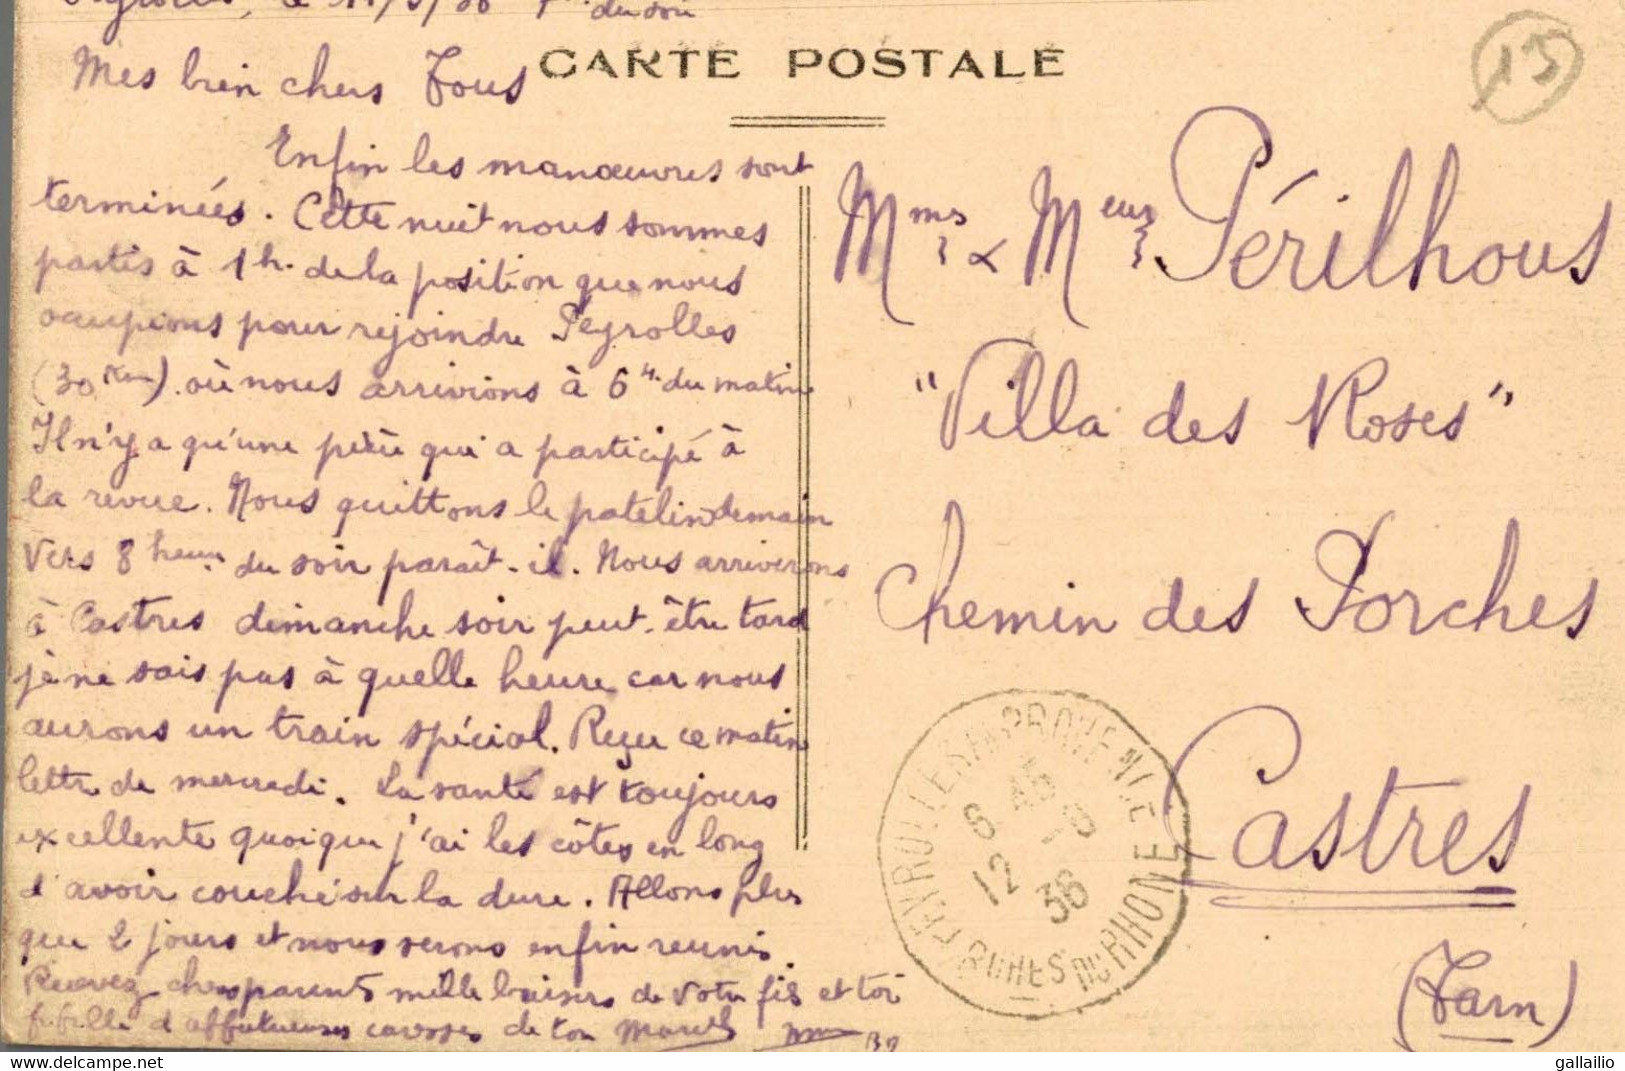 Peyrolles, le 11/9/36 7h. du soir
CARTE POSTALE
15
Mes bien chers Tous
Enfin les manœuvres sont
terminées. Cette nuit nous sommes
partis à 1h. de la position que nous
occupions pour rejoindre Peyrolles
(30 Km) où nous arrivions à 6 h. du matin
Il n'y a qu'une pièce qui a participé à
la revue. Nous quittons le patelin demain
Vers 8 heures du soir paraît-il. Nous arriverons
à Castres dimanche soir peut-être tard
je ne sais pas à quelle heure car nous
aurons un train spécial. Reçu ce matin
lettre de mercredi. La santé est toujours
excellente quoique j'ai les côtes en long
d'avoir couché sur la dure. Allons plus
que 2 jours et nous serons enfin reunis.
Recevez chers parents mille baisers de votre fils et toi
fifille d'affectueuses caresses de ton Marcel
Mmes & Meurs Périlhous
"Villa des Roses"
Chemin des Porches
Castres
(Tarn)
PEYROLLES EN PROVENCE
6 45
12 -9
36
BCHES DU RHONE
gallailio